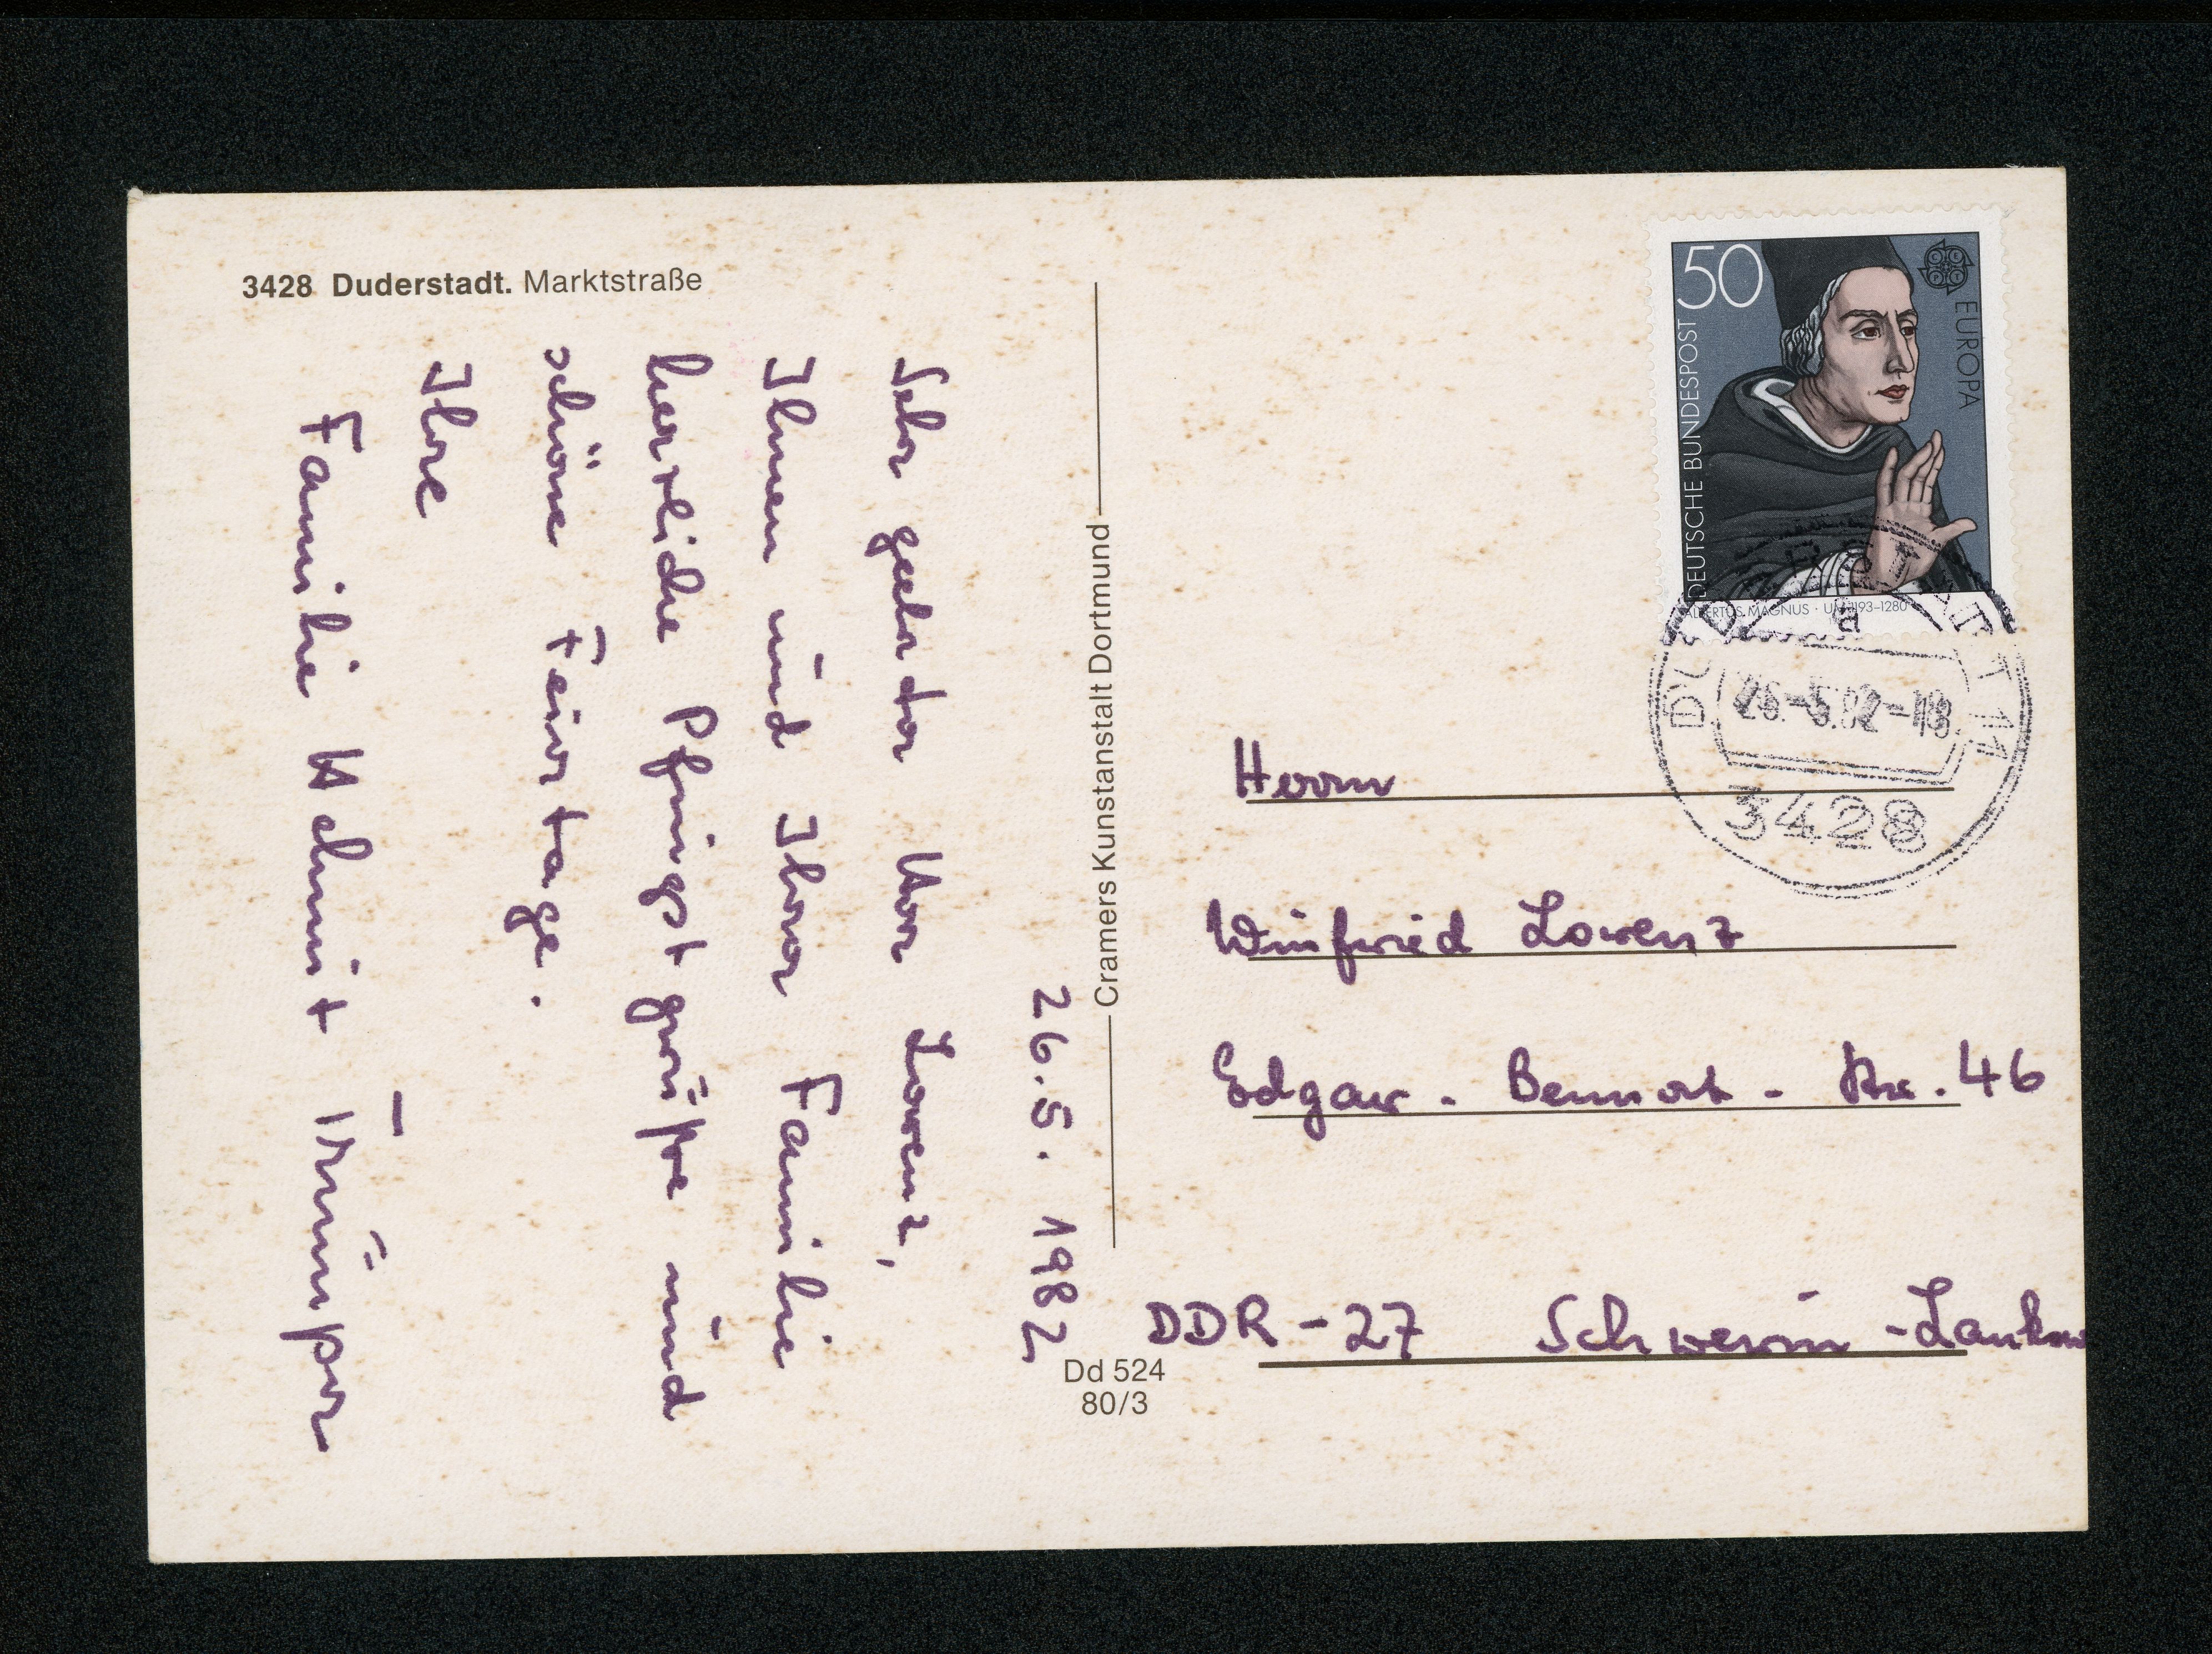 3428 Duderstadt. Marktstraße
26.5.1982
Sehr geehrter Herr Lorenz,
Ihnen und Ihrer Familie
herzliche Pfingstgrüße und
schöne Feiertage.
Ihre
Familie Helmut
Cramers Kunstanstalt Dortmund
Dd 524
80/3
50
DEUTSCHE BUNDESPOST
EUROPA
ALBERTUS MAGNUS · UM 1193–1280
DUDERSTADT 1
26.-5.82-18
3428
Herrn
Winfried Lorenz
Edgar - Bennert - Str. 46
DDR - 27 Schwerin - Lankow